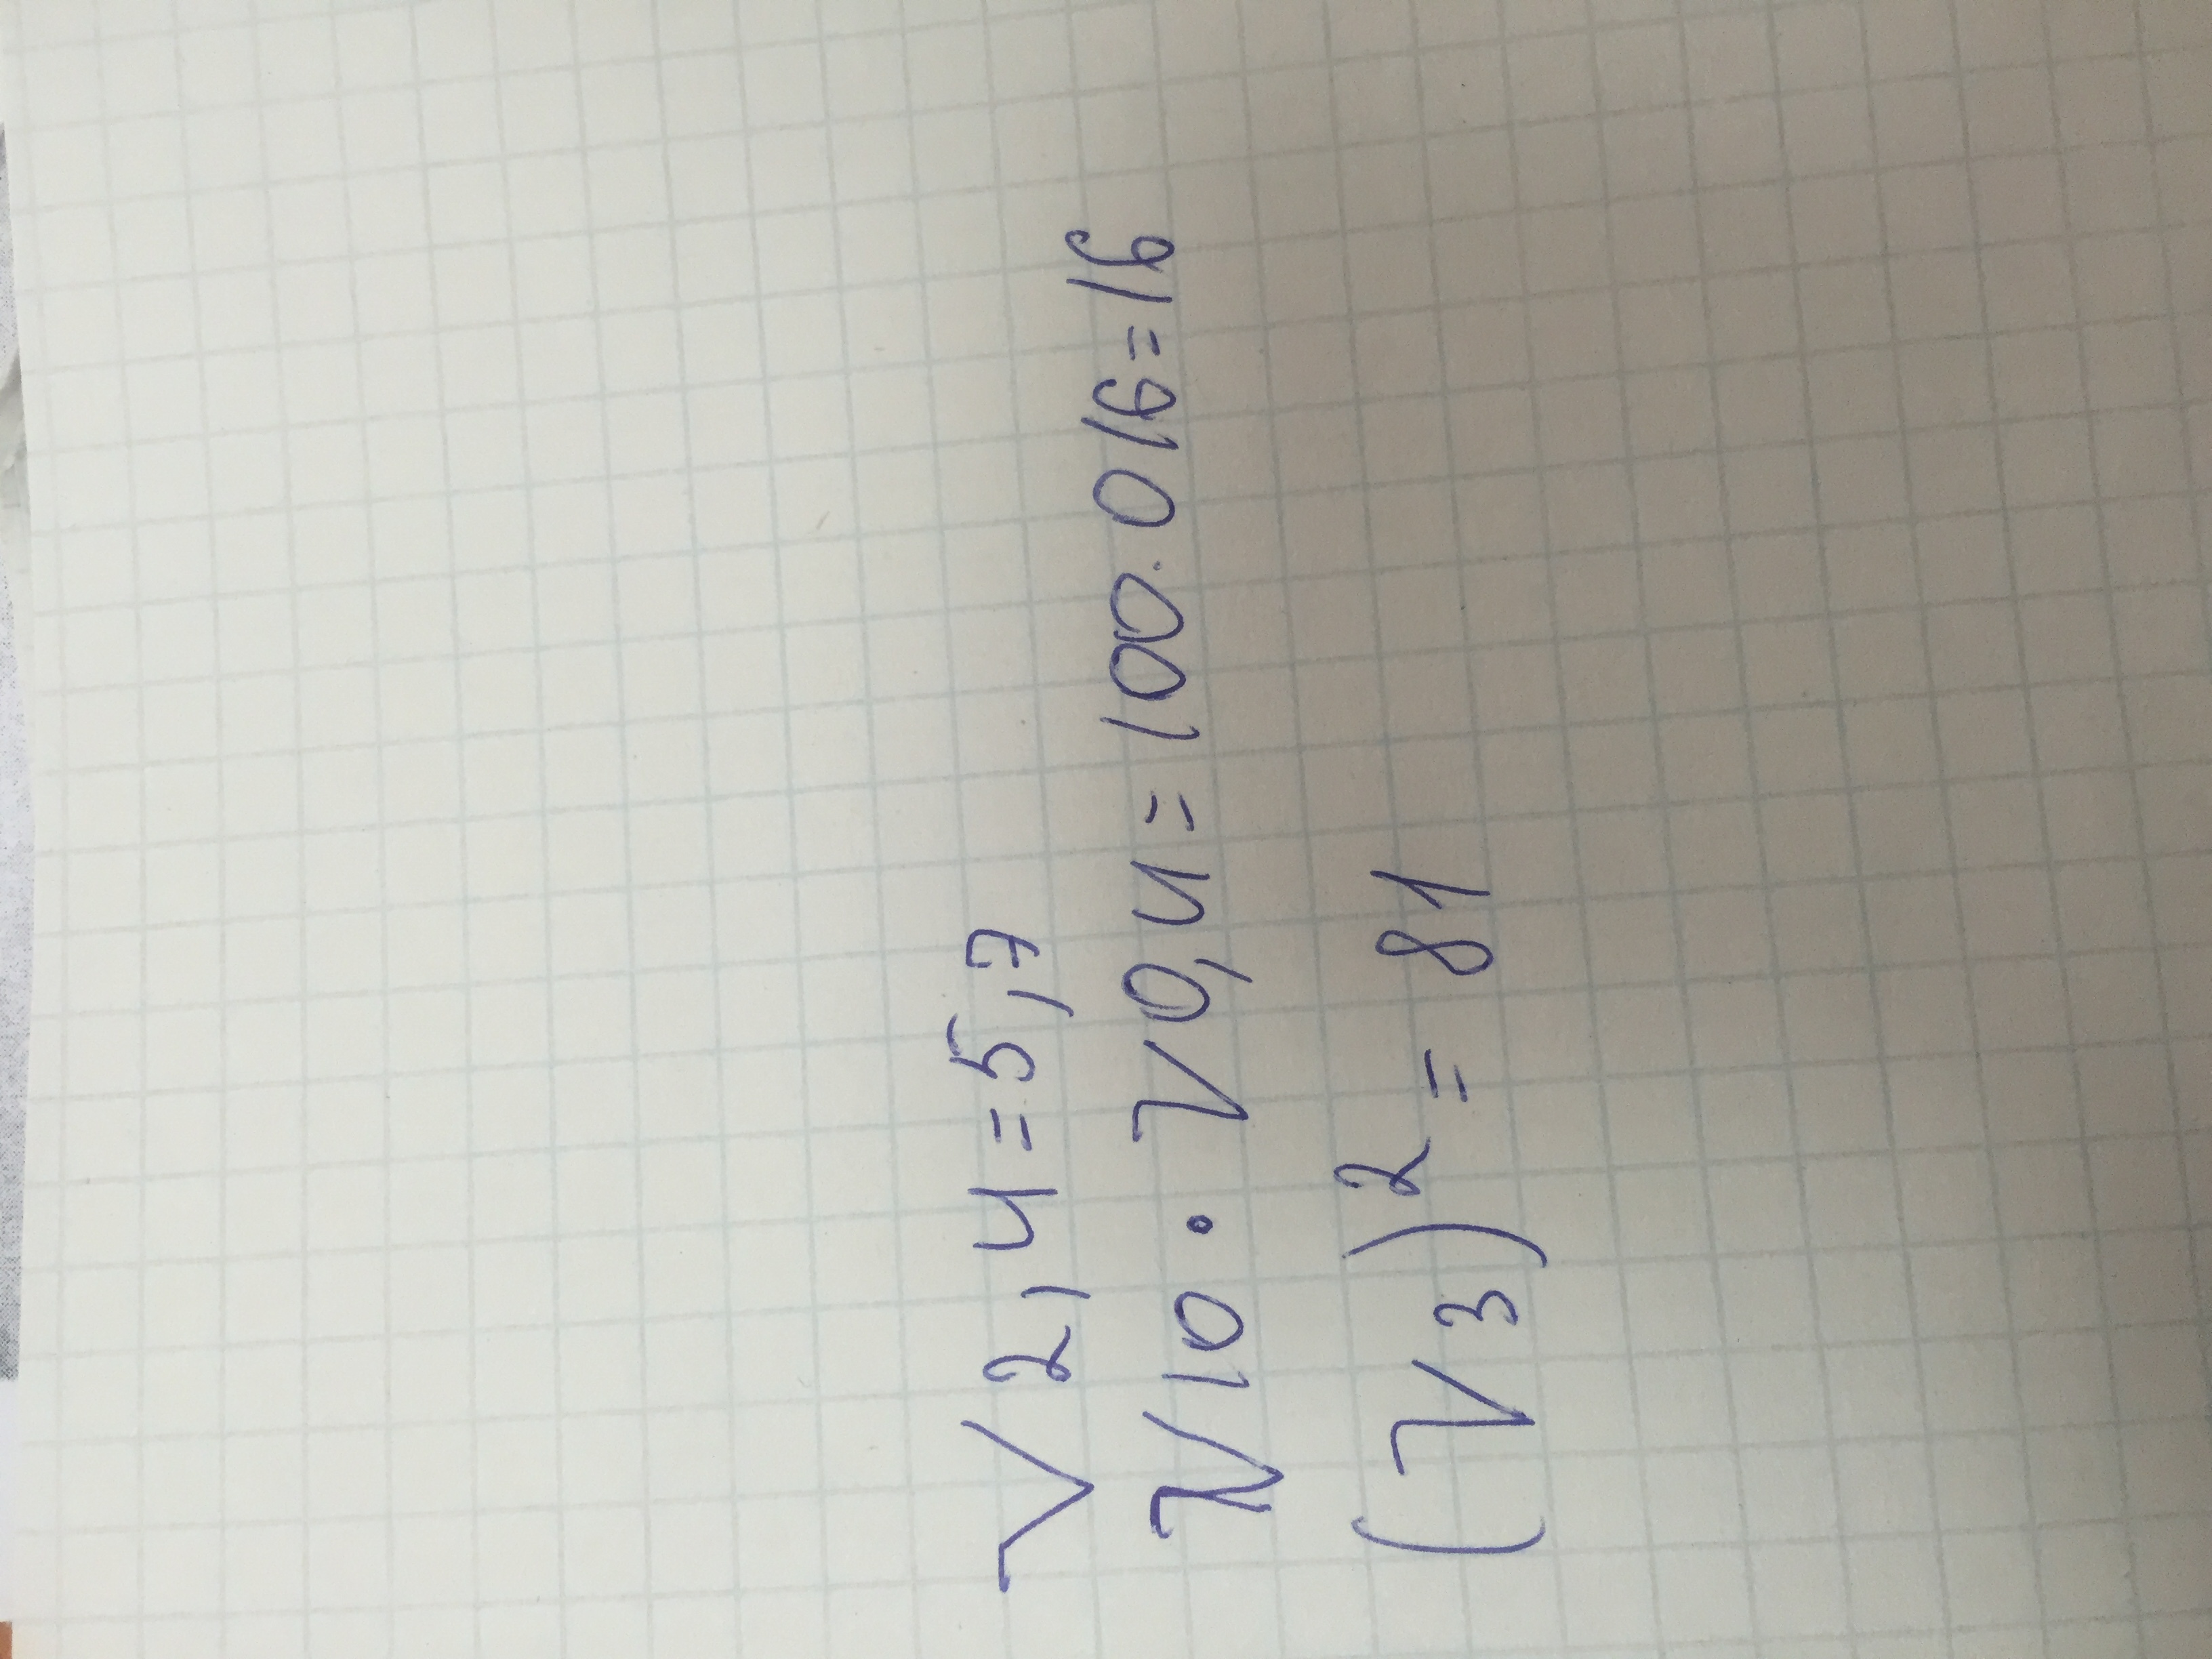 √2,4=5,7
√10·√0,4=100·016=16
(√3)²=81